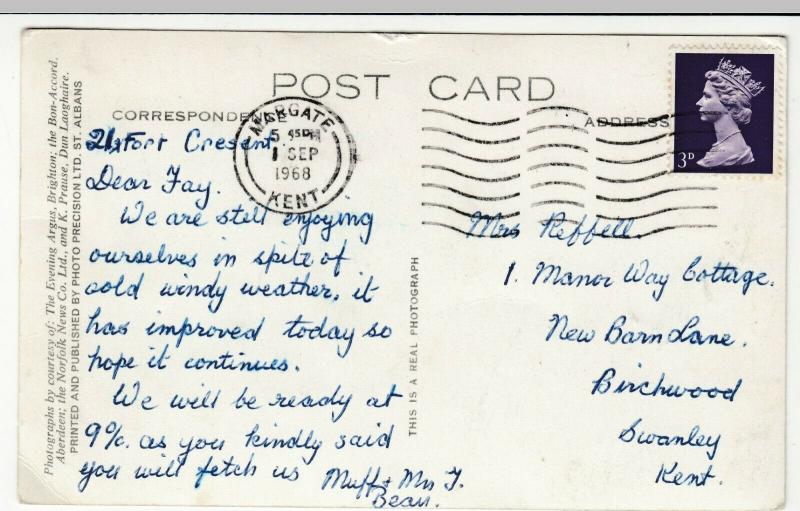 POST CARD
CORRESPONDE
ADDRESS
MARGATE
5 45PM
1 SEP
1968
KENT
3D
21, Fort Cresent
Dear Fay.
We are still enjoying
ourselves in spite of
cold windy weather, it
has improved today so
hope it continues.
We will be ready at
as you kindly said
you will fetch us
Muff & Mrs J.
Bean.
Mrs Reffell.
1. Manor Way Cottage.
New Barn Lane.
Birchwood
Swanley
Kent.
THIS IS A REAL PHOTOGRAPH
Photographs by courtesy of: The Evening Argus, Brighton; the Bon-Accord.
Aberdeen; the Norfolk News Co. Ltd., and K. Prause, Dun Laoghaire.
PRINTED AND PUBLISHED BY PHOTO PRECISION LTD. ST. ALBANS